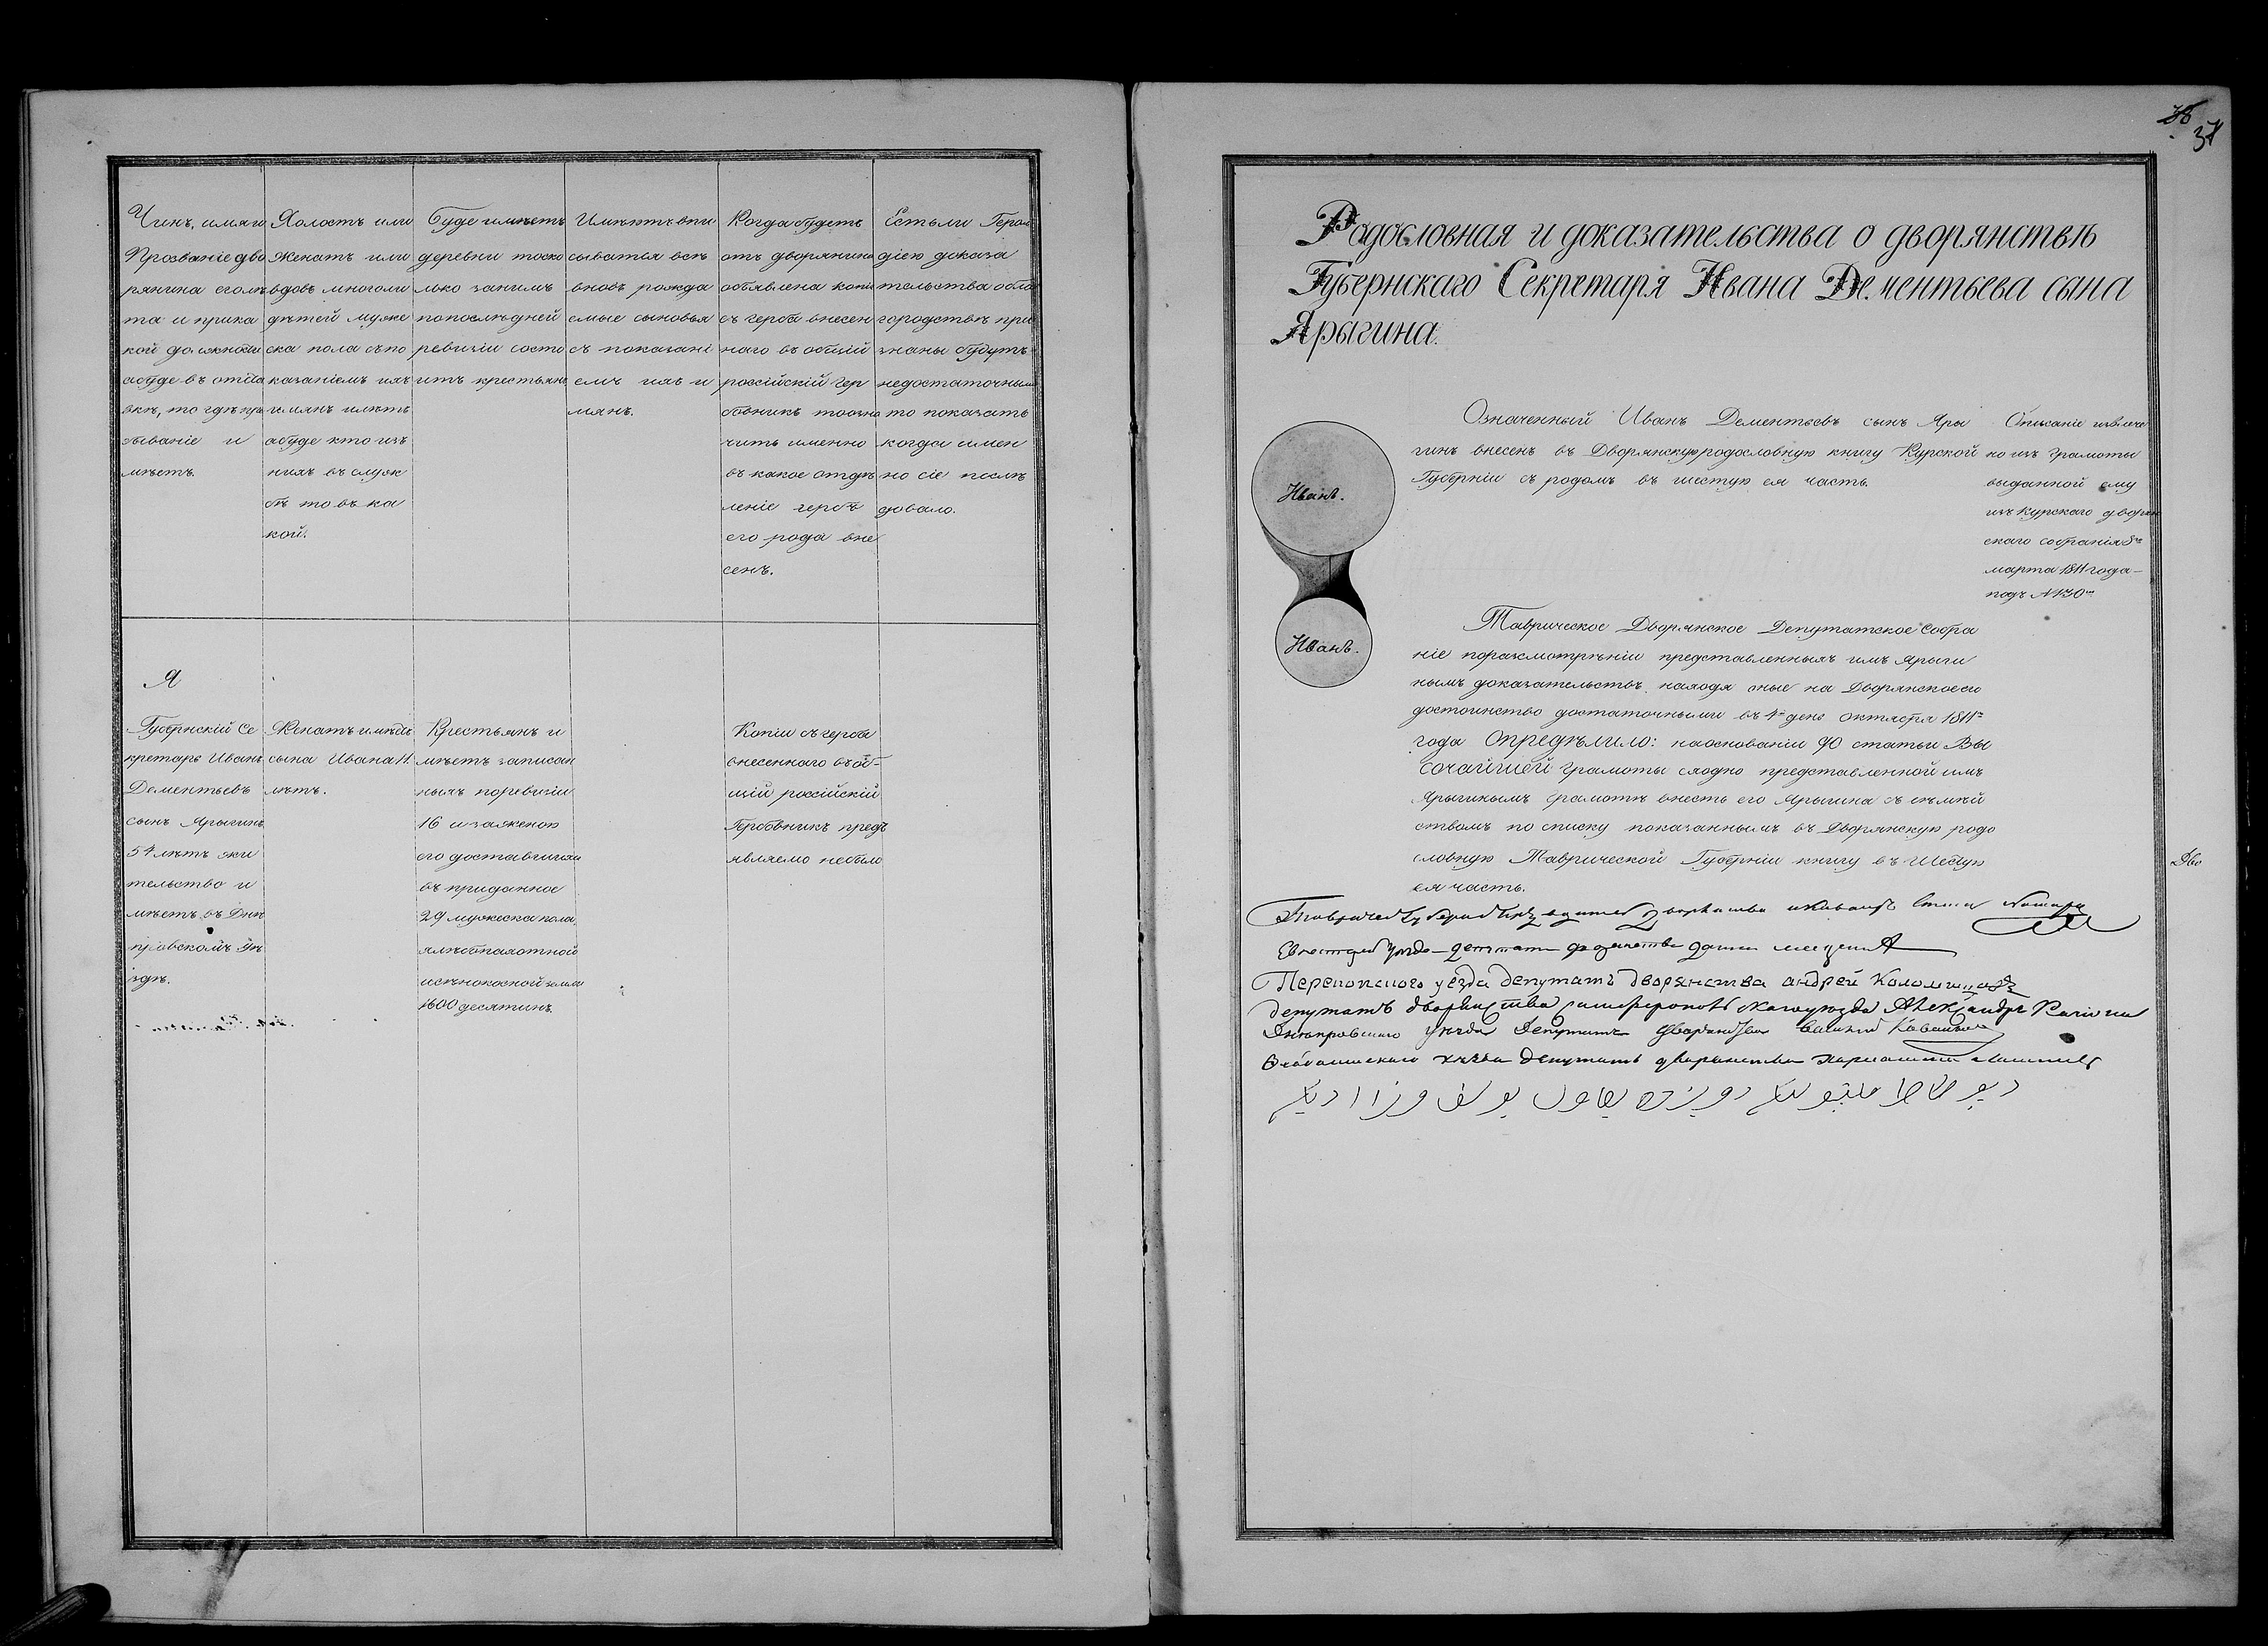 Чинъ, имя и
Прозваніе дво
рянина его лѣ
та и при ка
кой должности
абуде въ отста
вкѣ, то гдѣ пре
бываніе и
мѣетъ.
Холостъ или
Женатъ или
вдовъ многоли
дѣтей муже
ска пола съ по
казаніемъ ихъ
имянъ и лѣтъ
абуде кто изъ
нихъ въ служ
бѣ то въ ка
кой.
Буде имѣетъ
деревни толко
лько за нимъ
по послѣдней
ревизіи состо
итъ крестьянъ
Имѣютъ впи
сыватся всѣ
вновь рожда
емые сыновья
съ показані
емъ ихъ и
мянъ.
Когда будетъ
отъ дворянина
объявлена копія
съ герба внесен
наго въ общій
россійскій гер
бовникъ то озна
чить именно
въ какое отдѣ
леніе гербъ
его рода вне
сенъ.
Естьли Герол
діею доказа
тельства о бла
городствѣ при
знаны будутъ
недостаточными
то показать
когда имен
но сіе послѣ
довало.
Я
Губернскій Се
кретарь Иванъ
Дементьевъ
сынъ Ярыгинъ
54 лѣтъ жи
тельство и
мѣетъ въ Днѣ
провскомъ уѣ
здѣ.
Женатъ имѣетъ
сына Ивана 11.
лѣтъ.
Крестьянъ и
мѣетъ записан
ныхъ поревизіи
16 и за женою
его доставшихся
въ приданное
29 мужеска пола,
хлѣбопахотной
исѣнокосной земли
1600 десятинъ.
Копіи съ герба
внесеннаго въ об-
щій россійскій
Гербовникъ предъ
являемо небыло
37
Родословная и доказательства о дворянствѣ
Губернскаго Секретаря Ивана Дементьева сына
Ярыгина.
Иванъ.
Иванъ.
Означенный Иванъ Дементьевъ сынъ Яры
гинъ внесенъ въ Дворянскую родословную книгу Курской
Губерніи съ родомъ въ шестую ея часть.
Описаніе извлече
но изъ грамоты
выданной ему
изъ Курскаго дворян
скаго собранія 8го
марта 1811 года
подъ №130мъ
Таврическое Дворянское Депутатское Собра
ніе поразсмотрѣніи представленныхъ имъ Ярыги
нымъ доказательствъ, находя оные на Дворянское его
достоинство достаточными въ 4й день октября 1811го
года Опредѣлило: наоснованіи 90 статьи Вы
сочайшей грамоты сходно представленной имъ
Ярыгинымъ Грамотѣ внесть его Ярыгина съ сѣмей
ствомъ по списку показаннымъ въ Дворянскую родо
словную Таврической Губерніи книгу въ Шестую
ея часть.
Дво
Перекопского уезда депутатъ дворянства андрей Коломи
Депутатъ дворянства Симферополь скаго уѣзда Александръ
Днѣпровскаго уѣзда Депутатъ дворянства
уѣзда депутатъ дворянства